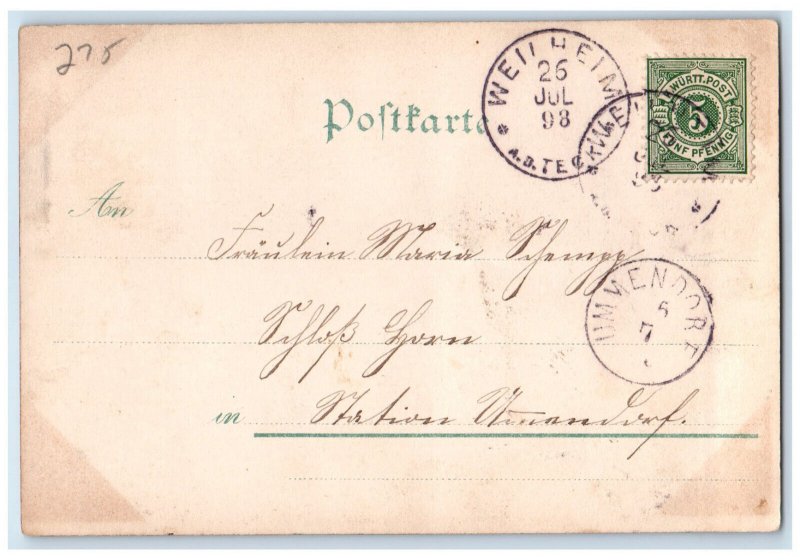 275
Postkarte
WEILHEIM
26
JUL
98
A.D. TECK
WÜRTT. POST
5
FÜNF PFENNIG
An
Fräulein Maria Schempp
Schloß Horn
in Station Ummendorf.
UMMENDORF
6
7